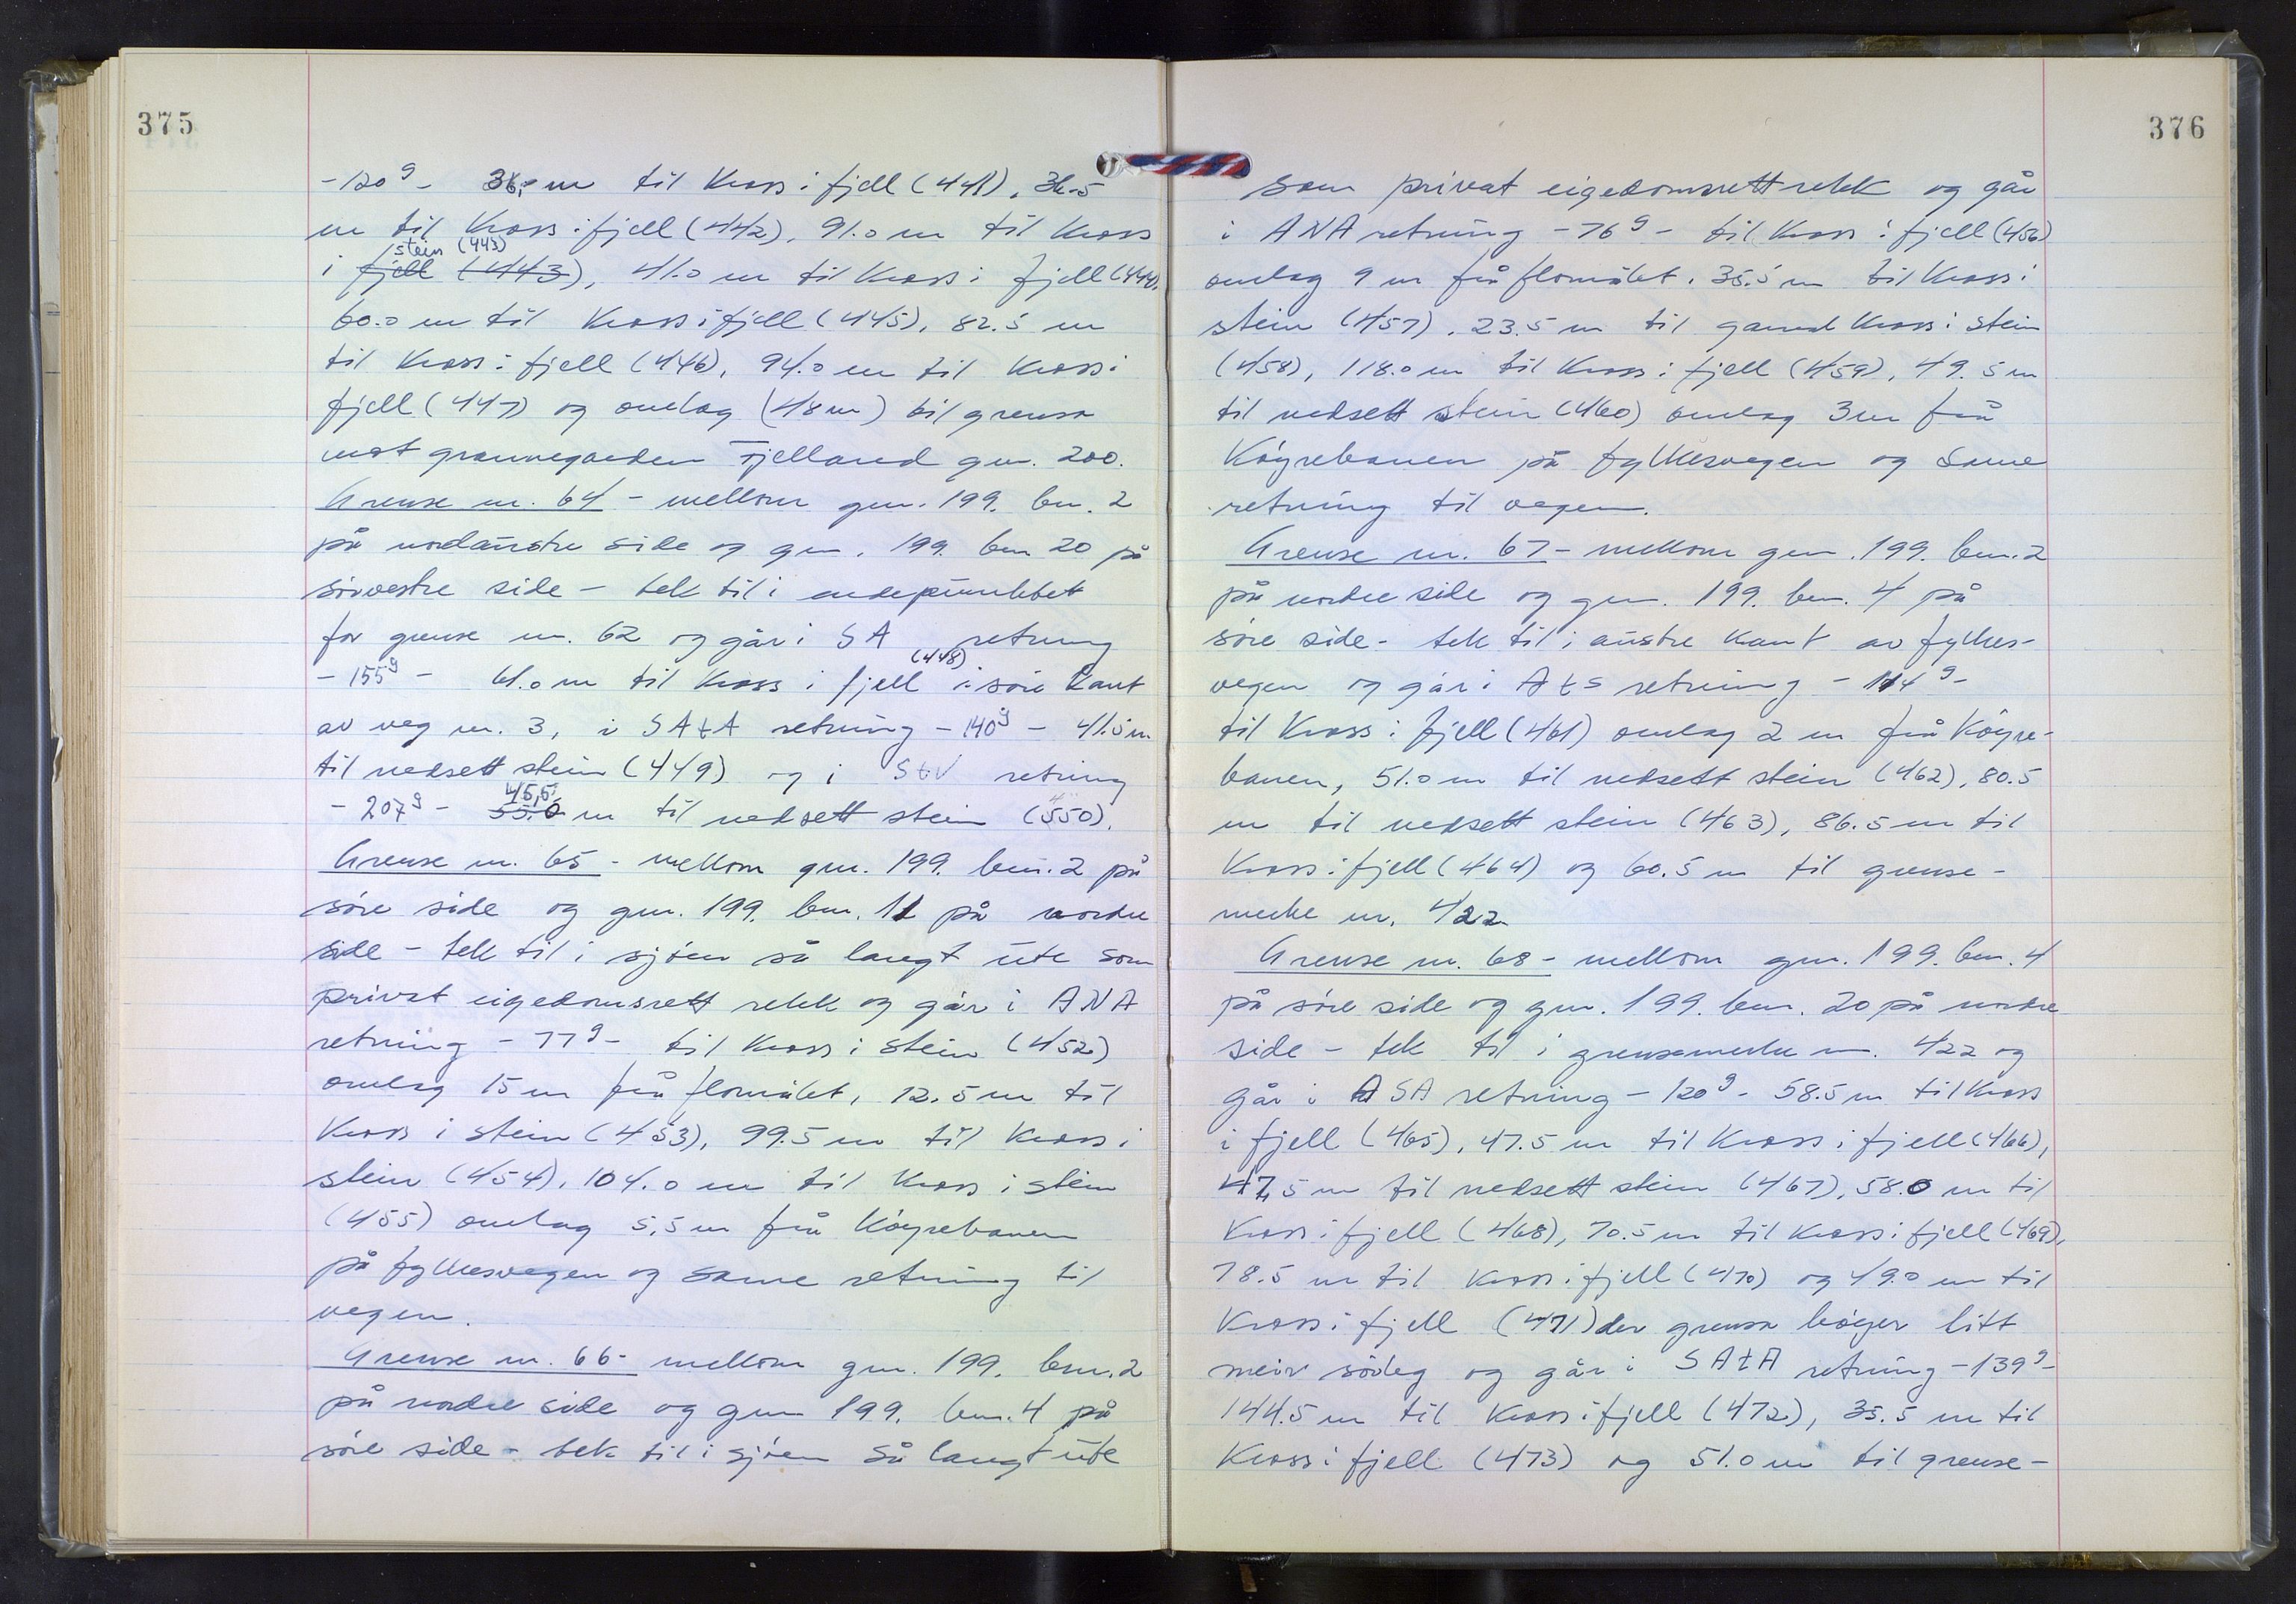 375
- 120g - 36,0 m til kross i fjell (441), 36.5
m til kross i fjell (442), 91.0 m til kross
stein (443)
i fjell (443), 41.0 m til kross i fjell (444),
60.0 m til kross i fjell (445), 82.5 m
til kross i fjell (446), 94.0 m til kross i
fjell (447) og omlag (48 m) til grensa
mot grannegarden Fjelland gnr. 200.
Grense nr. 64 - mellom gnr. 199. bnr. 2
på nordaustre side og gnr. 199. bnr 20 på
sörvestre side - tek til i endepunktet
for grense nr. 62 og går i SA retning
(448)
- 155g - 61.0 m til kross i fjell i söre kant
av veg nr. 3, i SAtA retning - 140g - 41.5 m
til nedsett stein (449) og i StV retning
45,5
- 207g - 55.0 m til nedsett stein (550).
Grense nr. 65 - mellom gnr. 199. bnr. 2 på
söre side og gnr. 199. bnr. 11 på nordre
side - tek til i sjöen så langt ute som
privat eigedomsrett rekk og går i ANA
retning - 77g - til kross i stein (452)
omlag 15 m frå flomålet, 12.5 m til
kross i stein (453), 99.5 m til kross i
stein (454), 104.0 m til kross i stein
(455) omlag 5,5 m frå köyrebanen
på fylkesvegen og same retning til
vegen.
Grense nr. 66 - mellom gnr. 199. bnr. 2
på nordre side og gnr 199. bnr. 4 på
söre side - tek til i sjöen så langt ute
376
som privat eigedomsrett rekk og går
i ANA retning - 76g - til kross i fjell (456)
omlag 9 m frå flomålet, 35.5 m til kross i
stein (457), 23.5 m til gamal kross i stein
(458), 118.0 m til kross i fjell (459), 49.5 m
til nedsett stein (460) omlag 3 m frå
köyrebanen på fylkesvegen og same
retning til vegen.
Grense nr. 67 - mellom gnr. 199. bnr. 2
på nordre side og gnr. 199. bnr. 4 på
söre side - tek til i austre kant av fylkes-
vegen og går i AtS retning - 114g -
til kross i fjell (461) omlag 2 m frå köyre-
banen, 51.0 m til nedsett stein (462), 80.5
m til nedsett stein (463), 86.5 m til
kross i fjell (464) og 60.5 m til grense-
merke nr. 422
Grense nr. 68 - mellom gnr. 199. bnr. 4
på söre side og gnr. 199. bnr. 20 på nordre
side - tek til i grensemerke nr. 422 og
går i ASA retning - 120g - 58.5 m til kross
i fjell (465), 47.5 m til kross i fjell (466),
47,5 m til nedsett stein (467), 58.0 m til
kross i fjell (468), 70.5 m til kross i fjell (469),
78.5 m til kross i fjell (470) og 49.0 m til
kross i fjell (471) der grensa böyger litt
meir sörleg og går i SAtA retning - 139g -
144.5 m til kross i fjell (472), 35.5 m til
kross i fjell (473) og 51.0 m til grense-